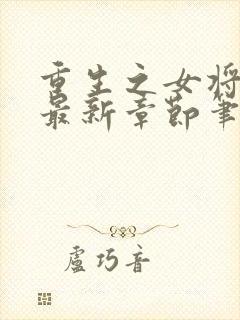 重生之女将
最新章节笔
盧巧音